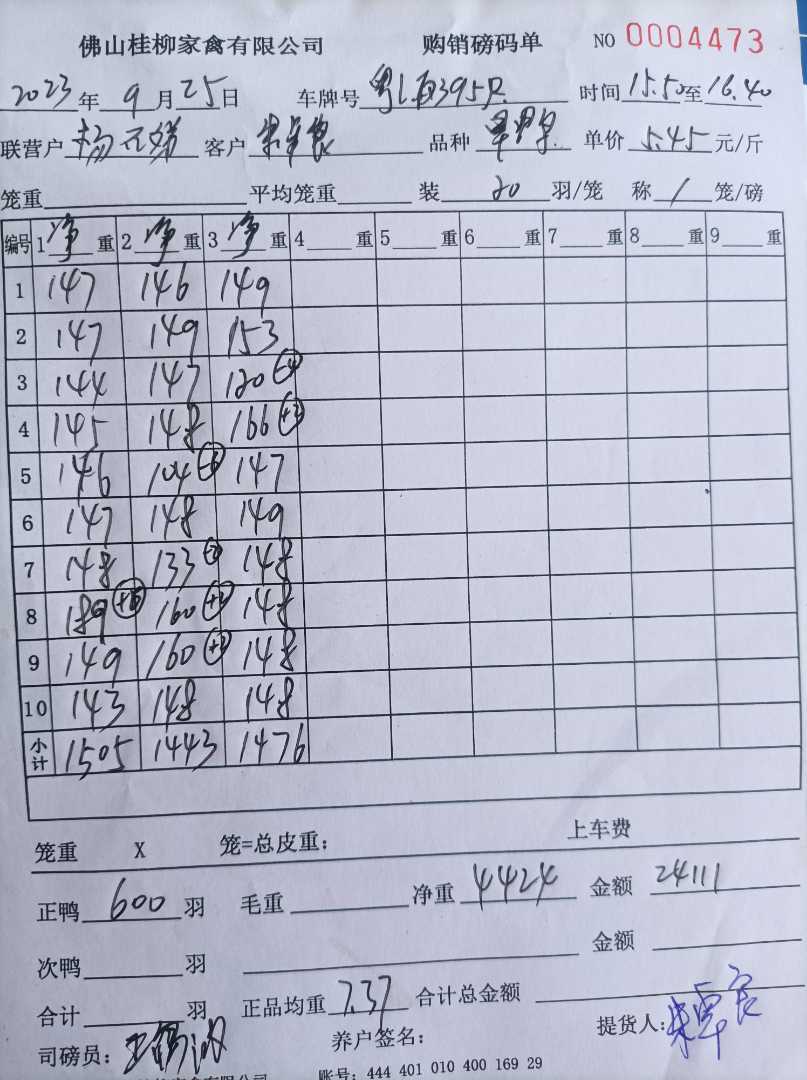 佛山桂柳家禽有限公司 购销磅码单 NO 0004473
2023年9月25日 车牌号 时间15.50至16.40
联营户 客户 品种 单价5.45元/斤
笼重 平均笼重 装20羽/笼 称1笼/磅
编号 1净重 2净重 3净重 4重 5重 6重 7重 8重 9重
1 147 146 149
2 147 149 153
3 144 147 120 -4
4 145 148 166
5 146 104 147
6 147 148 149
7 148 133 148
8 189 160 148
9 149 160 148
10 143 148 148
小计 1505 1443 1476
笼重 X 笼=总皮重: 上车费
正鸭600羽 毛重 净重4424 金额24111
次鸭 羽 金额
合计 羽 正品均重7.37 合计总金额
司磅员: 养户签名: 提货人:
账号: 444 401 010 400 169 29